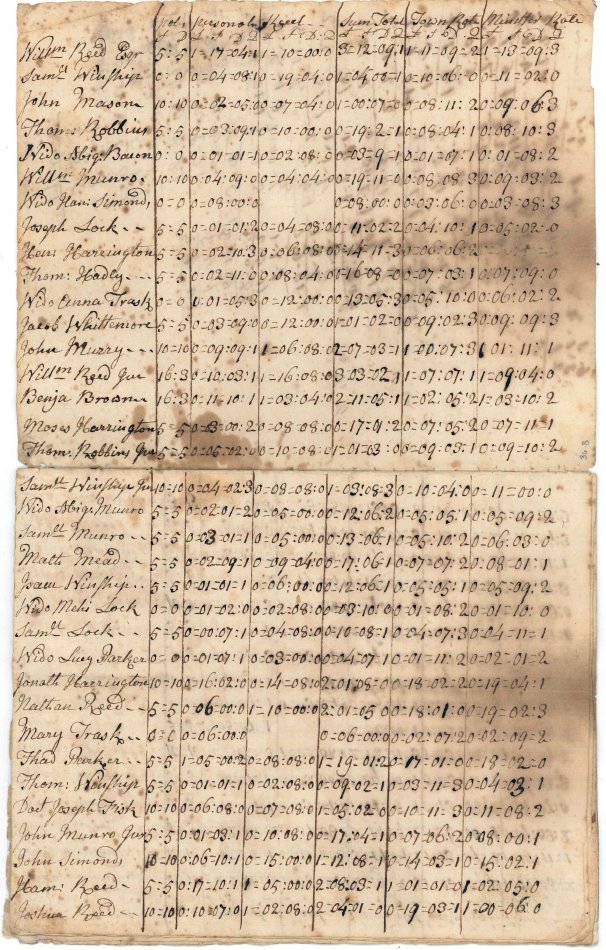 pol: personal: Reeel - Sum Totel Town Rate Minister Rate
Willm Reed Esqr 5=5 1=17=04:1 1=10=00:0 3=12=09:1 1=11=09:2 1=13=09:3
Samll Winship 0=0 0=04=08:1 0=19=04:0 1=04=00:1 0=10=06:0 0=11=02:0
John Mason 10:10 0=02=05:0 0=07=04:0 1=00:07=0 0=08:11:2 0:09:06:3
Thom: Robbins 5=5 0=03=09:1 0=10=00:0 0=19:2=1 0=08:04:1 0:08:10:3
Wido Abig: Bacon 0:0 0=01=01=1 0=02:08:0 0=03=9=1 0=01=07:1 0:01=08:2
Willm Munro 10:10 0:04:09:0 0=04:04:0 0=19:11=0 0=08:08:3 0:09:03:2
Wido Han: Simonds 0=0 0=08:00:0 0=08:00:0 0=03:06:0 0=03=08:3
Joseph Lock 5=5 0=01=01:2 0=04=08:0 0=11=02=2 0=04:10:1 0:05:02=0
Hen: Harrington 5=5 0=02=10:3 0=06:08:0 0=14=11=3 0=06=06:2
Thom: Hadly 5=5 0:02=11:0 0:08:04:0 0=16=08=0 0=07=03:1 0:07:09:0
Wido Anna Trask 0=0 0:01=05:3 0=12:00:0 0=13=05:3 0=05:10:0 0:06:02:2
Jacob Whittemore 5=5 0=03=09:0 0=12:00:0 1=01=02=0 0=09:02:3 0:09:09:3
John Murry 10=10 0=09:09:1 1=06:08:0 2=07=03=1 1=00:07:3 1:01:11:1
Willm Reed Jur 16:3 0=10:03:1 1=16:08:0 3=03=02:1 1=07:07:1 1=09:04:0
Benja Broown 16:3 0=11=10:1 1=03:04:0 2=11=05:1 1=02:05:2 1=03=10:2
Moses Harrington 5=5 0=03=00:2 0=08:08:0 0=17:01:2 0=07:05:2 0=07=11=1
Thom: Robbins Jur 5=5 0=05:02:0 0=10=08:0 1=01=03:0 0=09:03:1 0=09=10:2
Samll Winship Jur 10=10 0=04=02:3 0=08=08:0 1=03:08=3 0=10=04:0 0=11=00:0
Wido Abig: Munro 5=5 0=02=01=2 0=05=00:0 0=12:06:2 0=05:05:1 0:05=09:2
Samll Munro 5=5 0:03=01=1 0=05:00:0 0=13=06:1 0=05:10:2 0:06=03:0
Matt: Mead 5=5 0:02=09:1 0=09:04:0 0=17:06:1 0=07=07:2 0:08=01:1
Isaac Winship 5=5 0=01=01=1 0=06:00:0 0=12:06:1 0=05:05:1 0=05:09:2
Wido Mehi Lock 0=0 0:01=02:0 0=02:08:0 0=03:10:0 0=01=08:2 0=01=10:0
Samll Lock 5=5 0=00:07:1 0=04:08:0 0=10=08=1 0=04=07:3 0:04=11=1
Wido Lucy Parker 0=0 0=01=07:1 0=03=00:0 0=04=07:1 0=01=11:2 0=02=01=2
Jonath Harrington 10=10 0=16:02:0 0=14=08:0 2=01=08=0 0=18=02:2 0=19=04:1
Nathan Reed 5=5 0:06:00:0 1=10=00:0 2:01=05:0 0=18:01:0 0=19=02:3
Mary Trask 0=0 0=06:00:0 0=06=00:0 0=02:07:2 0=02:09=2
Thad Parker 5=5 1=05=00:2 0=08:08:0 1=19:01:2 0=17=01=0 0=18=02=0
Thom: Winship 5=5 0=01=01=1 0=02:08:0 0=09:02=1 0=03=11=3 0=04=03:1
Dad Joseph Fisk 10=10 0=06:08:0 0=07=08:0 1=05:02=0 0=10=11=3 0=11=08:2
John Munro Jur 5=5 0:01=03:1 0=10:08:0 0=17:04=1 0=07=06:2 0:08:00:1
John Simonds 10=10 0:06=10:1 0=15:00:0 1=12:08=1 0=14=03=1 0=15:02:1
Ham: Reed 5=5 0:17=10:1 1=05:00:0 2:08:03=1 1=01=01=0 1=02:05:0
Joshua Reed 10=10 0:10=07:0 1=02:08:0 2=04:01=0 0=19=03=1 1=00=06:0